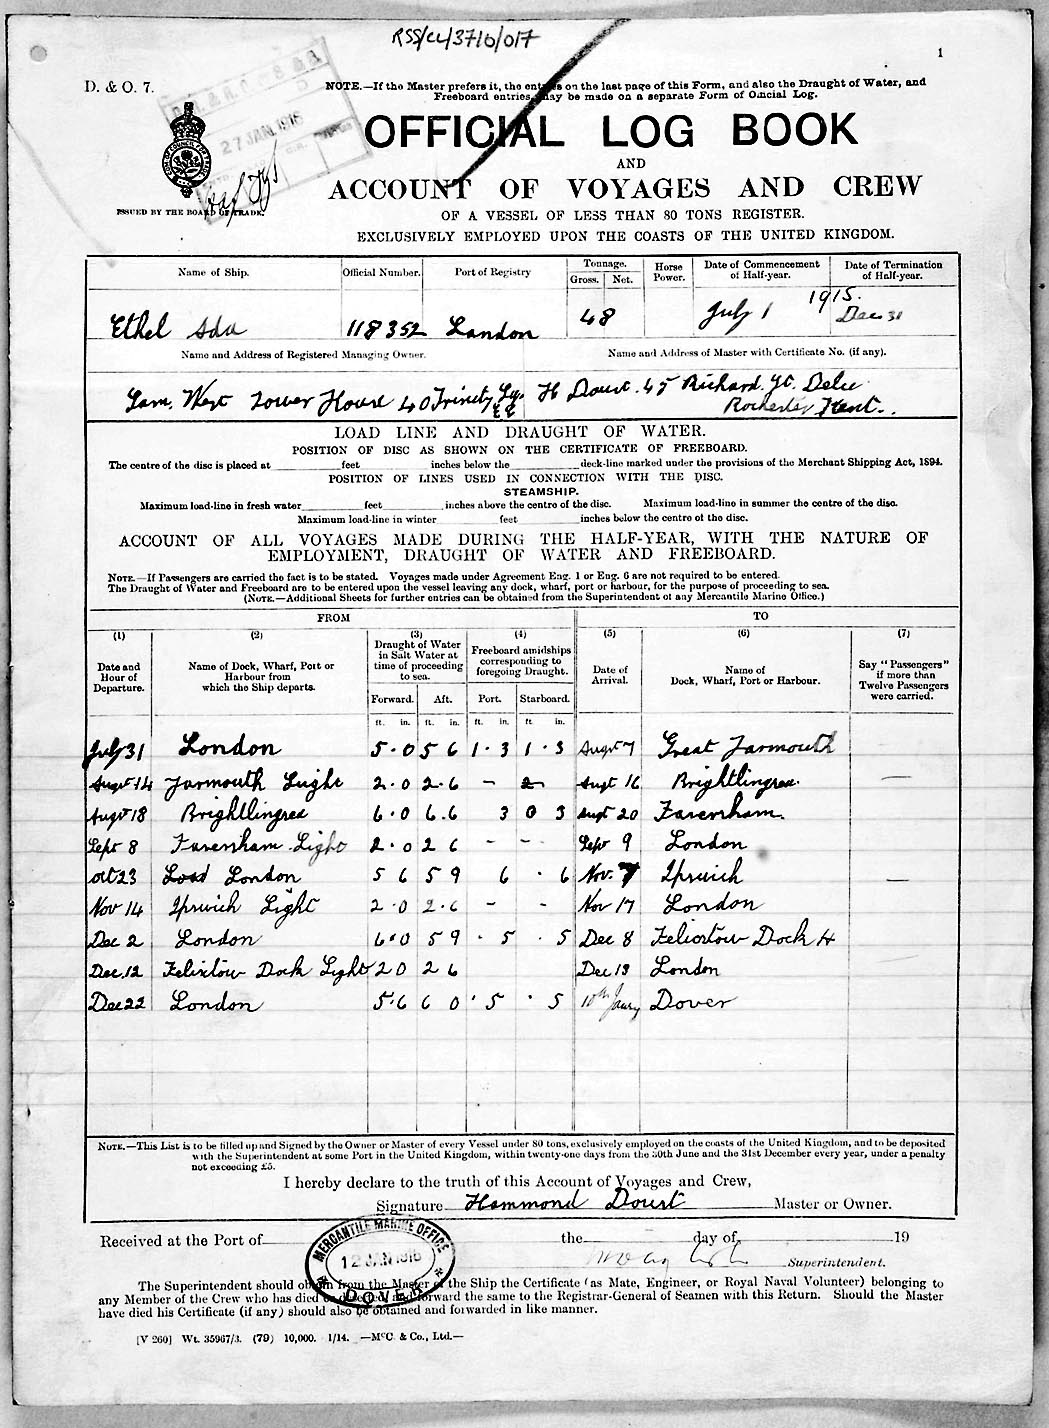 RSS/CL/3710/017
1
D. & O. 7.
NOTE.—If the Master prefers it, the entries on the last page of this Form, and also the Draught of Water, and
Freeboard entries, may be made on a separate Form of Official Log.
27 JAN. 1916
OFFICIAL LOG BOOK
AND
ACCOUNT OF VOYAGES AND CREW
ISSUED BY THE BOARD OF TRADE.
OF A VESSEL OF LESS THAN 80 TONS REGISTER.
EXCLUSIVELY EMPLOYED UPON THE COASTS OF THE UNITED KINGDOM.
Name of Ship. Official Number. Port of Registry Tonnage. Gross. Net. Horse Power. Date of Commencement of Half-year. Date of Termination of Half-year.
Ethel Ada 118352 London 48 July 1 1915. Dec 31
Name and Address of Registered Managing Owner. Name and Address of Master with Certificate No. (if any).
Sam. West Tower House 40 Trinity Sq. H Doust. 45 Richard. St. Delce
EC Rochester Kent.
LOAD LINE AND DRAUGHT OF WATER.
POSITION OF DISC AS SHOWN ON THE CERTIFICATE OF FREEBOARD.
The centre of the disc is placed at feet inches below the deck-line marked under the provisions of the Merchant Shipping Act, 1894.
POSITION OF LINES USED IN CONNECTION WITH THE DISC.
STEAMSHIP.
Maximum load-line in fresh water feet inches above the centre of the disc. Maximum load-line in summer the centre of the disc.
Maximum load-line in winter feet inches below the centre of the disc.
ACCOUNT OF ALL VOYAGES MADE DURING THE HALF-YEAR, WITH THE NATURE OF
EMPLOYMENT, DRAUGHT OF WATER AND FREEBOARD.
NOTE.—If Passengers are carried the fact is to be stated. Voyages made under Agreement Eng. 1 or Eng. 6 are not required to be entered.
The Draught of Water and Freeboard are to be entered upon the vessel leaving any dock, wharf, port or harbour, for the purpose of proceeding to sea.
(NOTE.—Additional Sheets for further entries can be obtained from the Superintendent of any Mercantile Marine Office.)
FROM TO
(1) (2) (3) (4) (5) (6) (7)
Date and Hour of Departure. Name of Dock, Wharf, Port or Harbour from which the Ship departs. Draught of Water in Salt Water at time of proceeding to sea. Freeboard amidships corresponding to foregoing Draught. Date of Arrival. Name of Dock, Wharf, Port or Harbour. Say "Passengers" if more than Twelve Passengers were carried.
Forward. Aft. Port. Starboard.
ft. in. ft. in. ft. in. ft. in.
July 31 London 5·0 5 6 1·3 1·3 Augst 7 Great Yarmouth
Augst 14 Yarmouth Light 2·0 2·6 – 2 Augt 16 Brightlingsea —
Augst 18 Brightlingsea 6·0 6·6 3 0 3 Augt 20 Faversham.
Sept 8 Faversham Light 2·0 2 6 – – Sept 9 London
Oct 23 Load London 5 6 5 9 6 · 6 Nov. 7 Ipswich —
Nov 14 Ipswich Light 2·0 2·6 – – Nov 17 London
Dec 2 London 6·0 5 9 · 5 · 5 Dec 8 Felixstow Dock H
Dec. 12 Felixtow Dock Light 2 0 2 6 Dec 13 London
Dec 22 London 5·6 6 0 · 5 · 5 10th Jany Dover
NOTE.—This List is to be filled up and Signed by the Owner or Master of every Vessel under 80 tons, exclusively employed on the coasts of the United Kingdom, and to be deposited
with the Superintendent at some Port in the United Kingdom, within twenty-one days from the 30th June and the 31st December every year, under a penalty
not exceeding £5.
I hereby declare to the truth of this Account of Voyages and Crew,
Signature Hammond Doust Master or Owner.
Received at the Port of the day of 19
Superintendent.
MERCANTILE MARINE OFFICE
12 JAN 1916
DOVER
The Superintendent should obtain from the Master of the Ship the Certificate (as Mate, Engineer, or Royal Naval Volunteer) belonging to
any Member of the Crew who has died or deserted, and forward the same to the Registrar-General of Seamen with this Return. Should the Master
have died his Certificate (if any) should also be obtained and forwarded in like manner.
[V 260] Wt. 35967/3. (79) 10,000. 1/14. —McC. & Co., Ltd.—